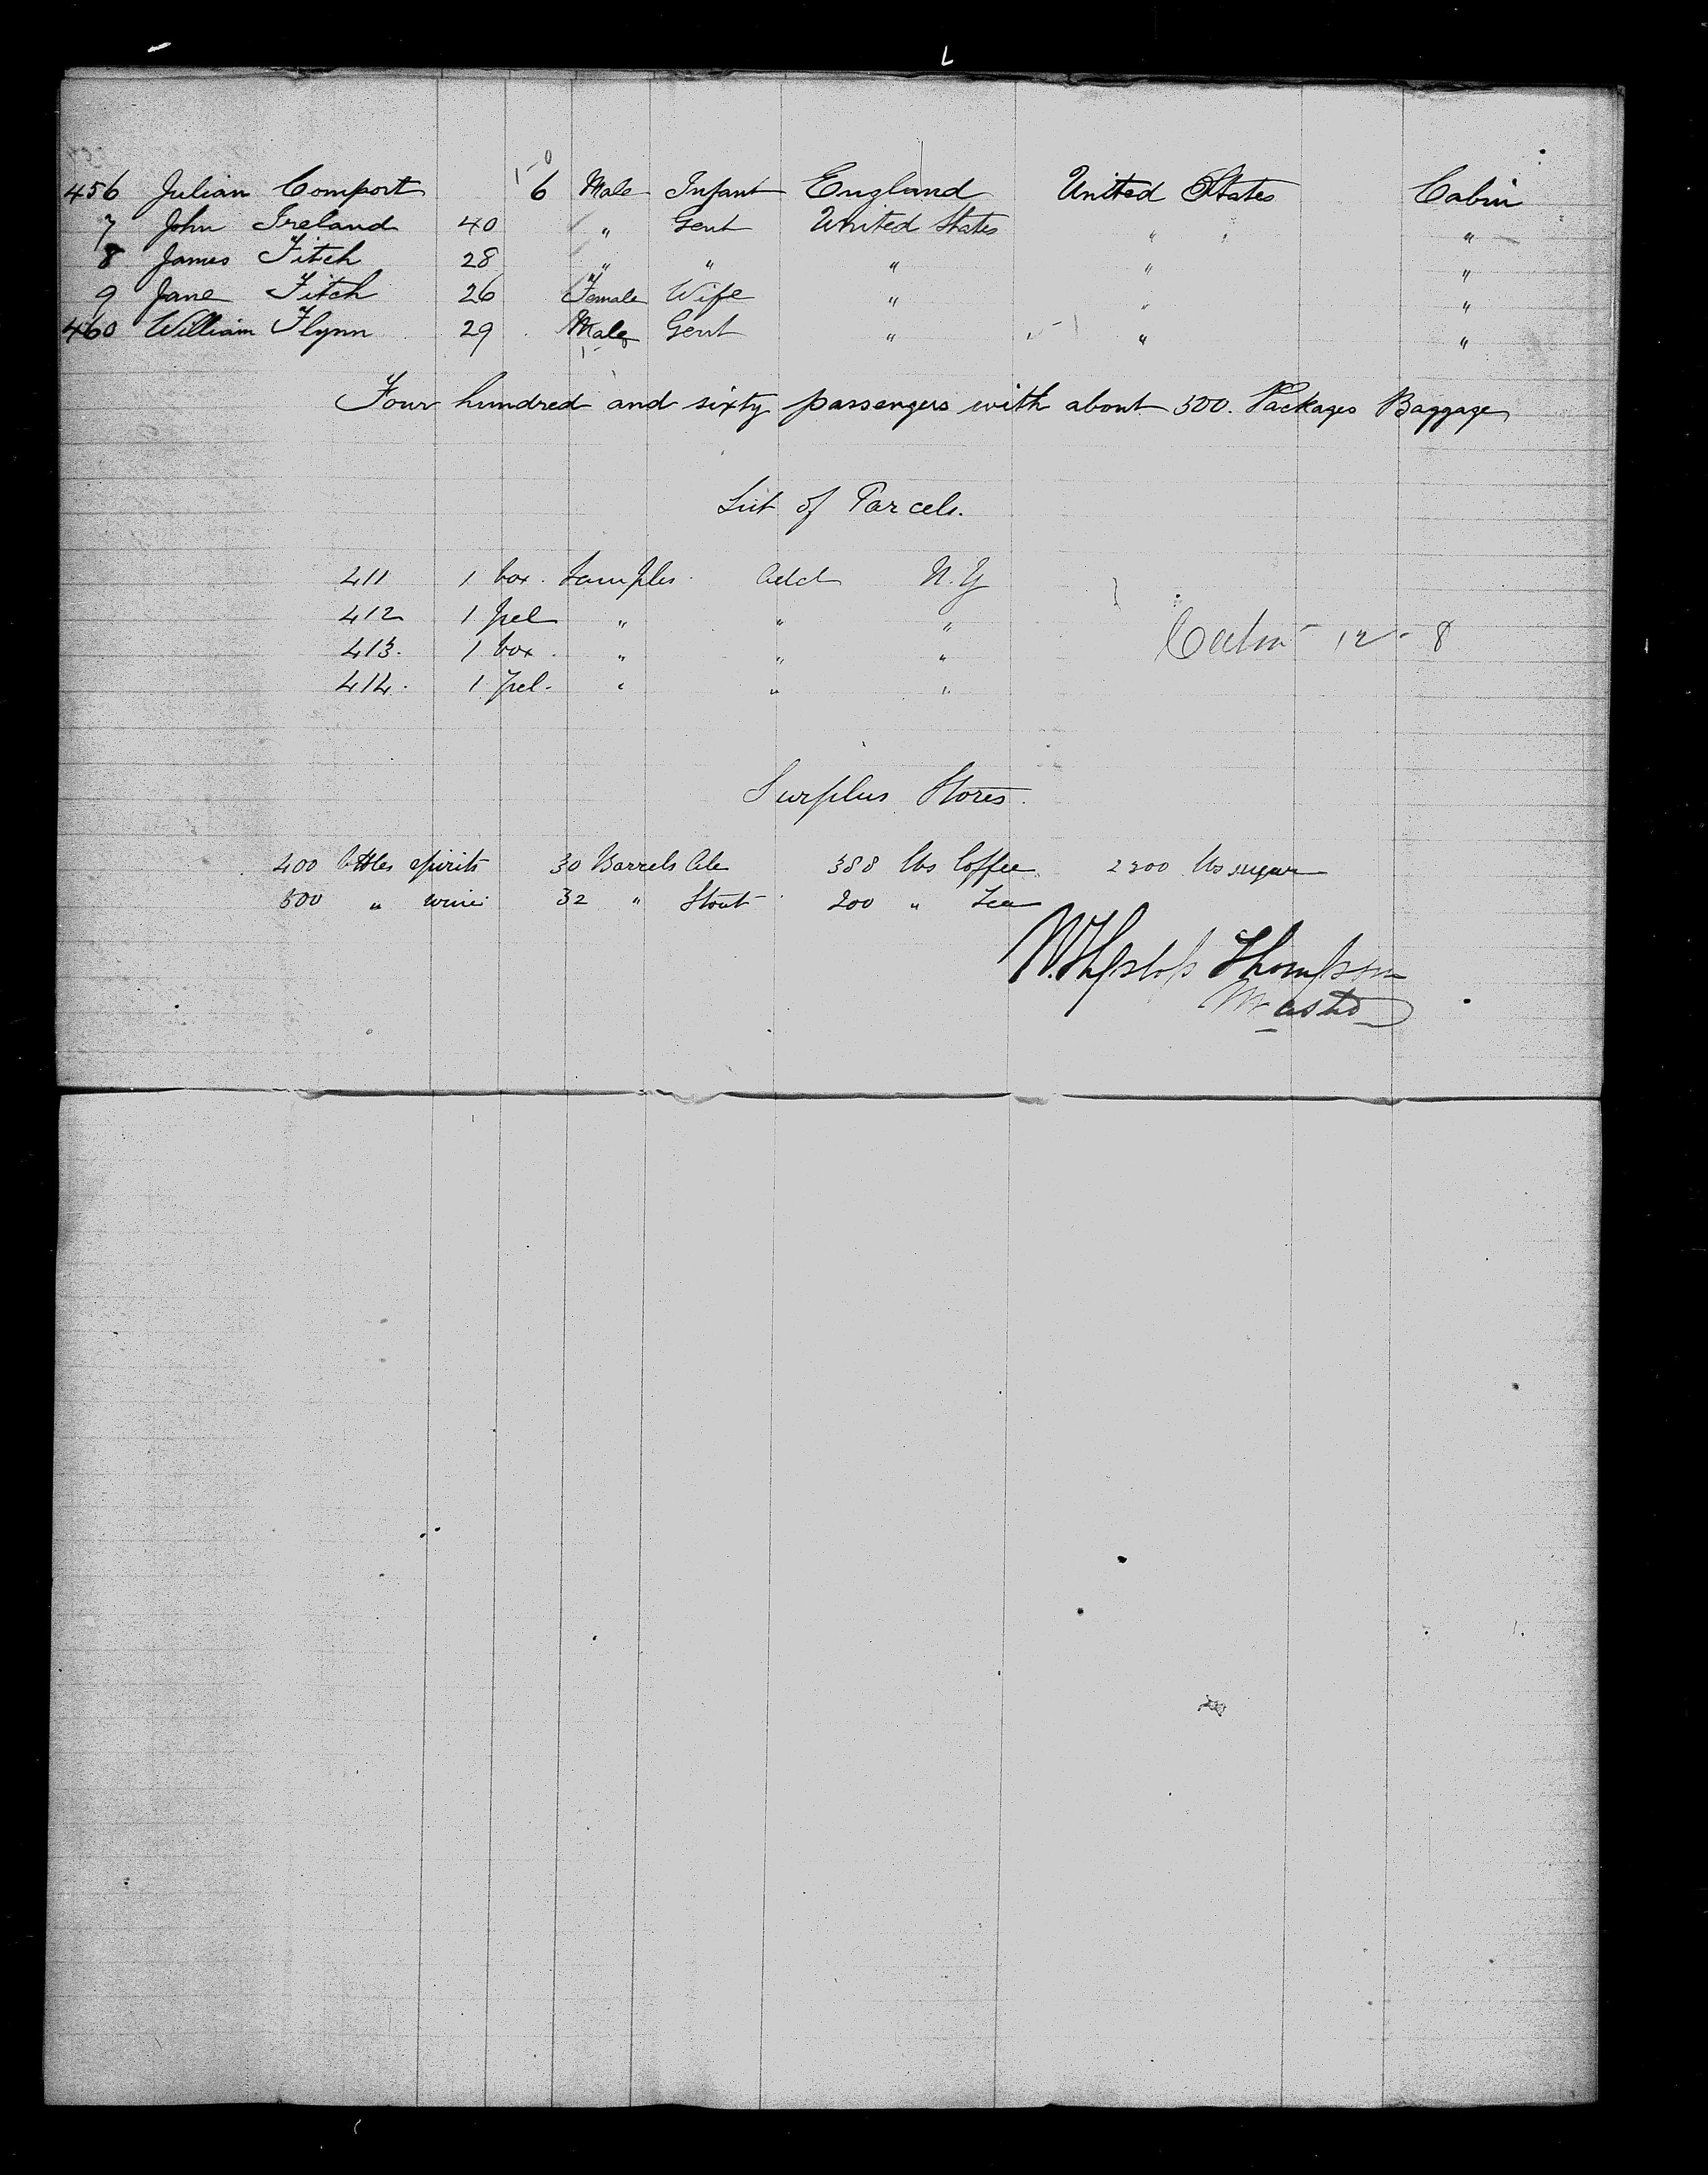 456 Julian Comport 6 Male Infant England United States Cabin
7 John Ireland 40 " Gent United States " "
8 James Fitch 28 " " " " "
9 Jane Fitch 26 Female Wife " " "
460 William Flynn 29 Male Gent " " "
Four hundred and sixty passengers with about 500. Packages Baggage
List of Parcels.
411 1 box. Samples. Add N.Y
412 1 pcl " " "
413. 1 box. " " "
414. 1 pcl. " " "
12 - 8
Surplus Stores.
400 bttles spirits 30 Barrels Ale 388 lbs Coffee 2300 lbs sugar
500 " wine 32 " Stout 200 " Tea
Thompson
Master